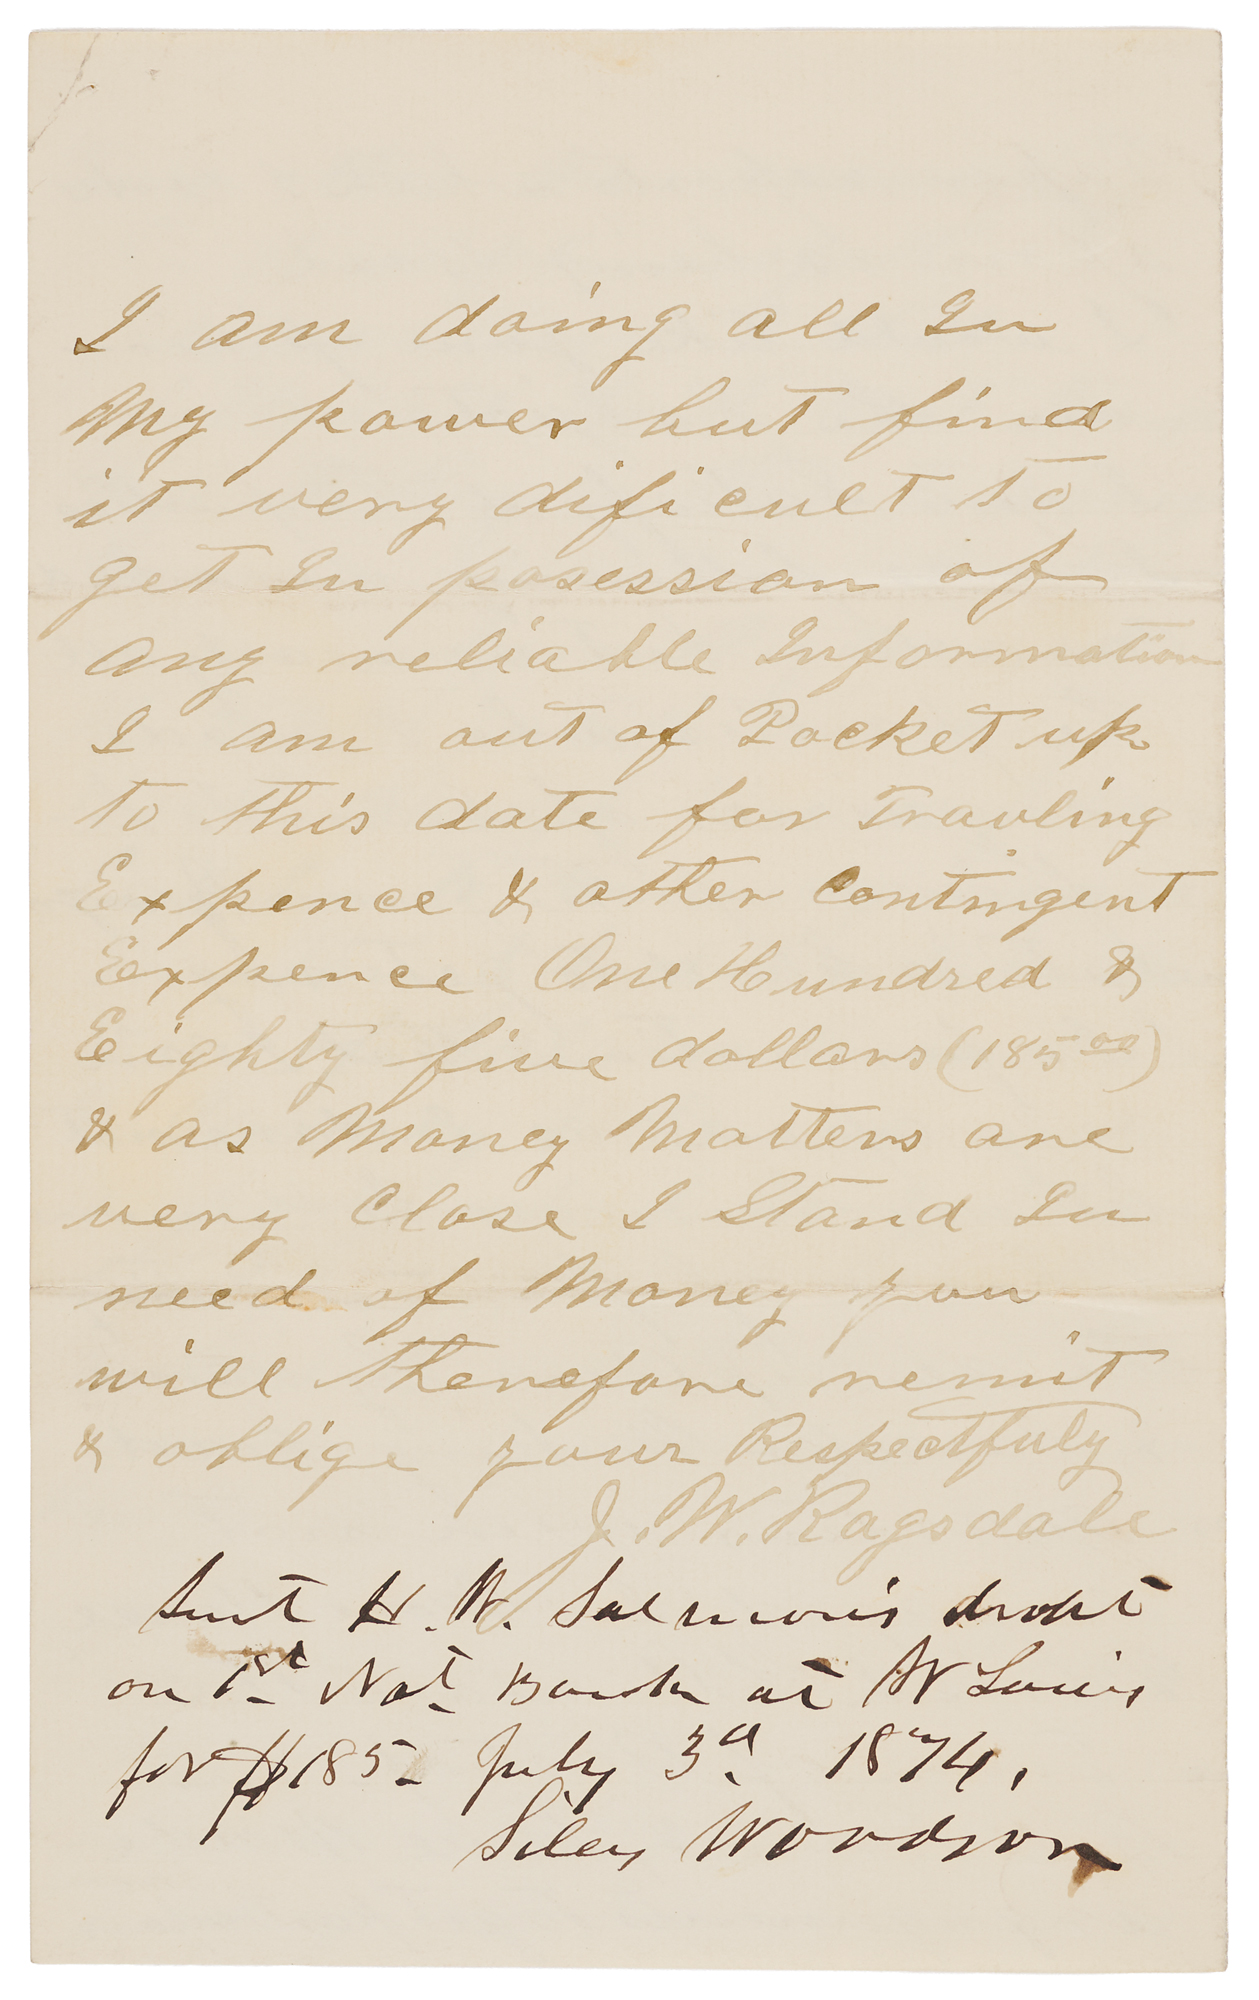 I am doing all In
My power but find
it very dificult to
get In posession of
any reliable Information
I am out of Pocket up
to this date for Travling
Expence & other Contingent
Expence One Hundred &
Eighty five dollars (185 00)
& as Money Matters are
very Close I Stand In
need of Money you
will therefore remit
& oblige your Respectfuly
J. W. Ragsdale
Sent H. W. Salmon's draft
on 1st Nat. Bank at St Louis
for $185- July 3d. 1874.
Silas Woodson